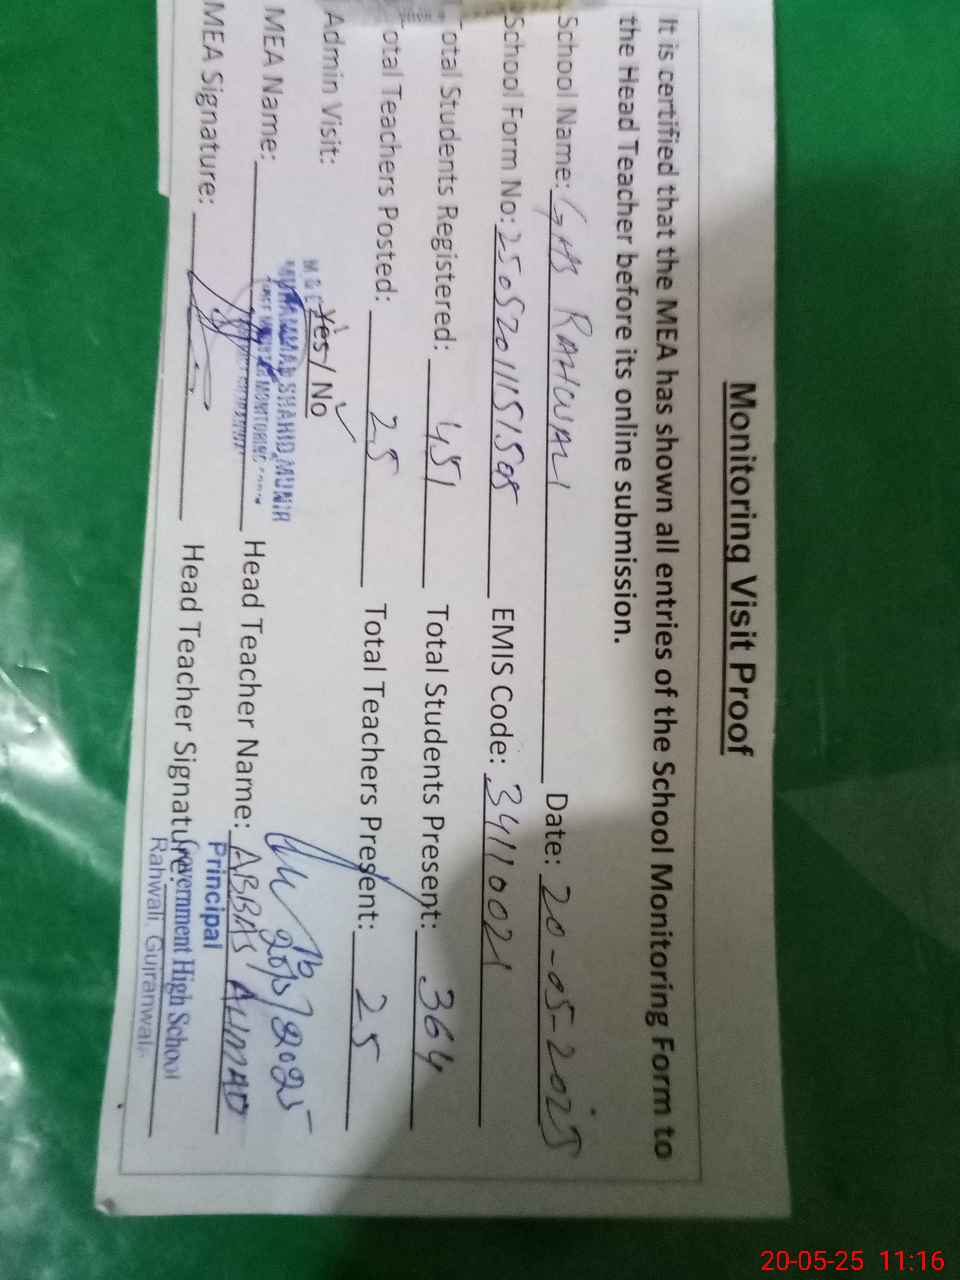 Monitoring Visit Proof
It is certified that the MEA has shown all entries of the School Monitoring Form to
the Head Teacher before its online submission.
School Name: GHS RAHWALI Date: 20-05-2025
School Form No: 25052011151505 EMIS Code: 34110021
Total Students Registered: 451 Total Students Present: 364
Total Teachers Posted: 25 Total Teachers Present: 25
Admin Visit: Yes / No ✓
20/5/2025
MUHAMMAD SHAHID MUNIR
MONITORING
MEA Name: Head Teacher Name: ABBAS AHMAD
Principal
MEA Signature: Head Teacher Signature:
Government High School
Rahwali, Gujranwala
20-05-25 11:16